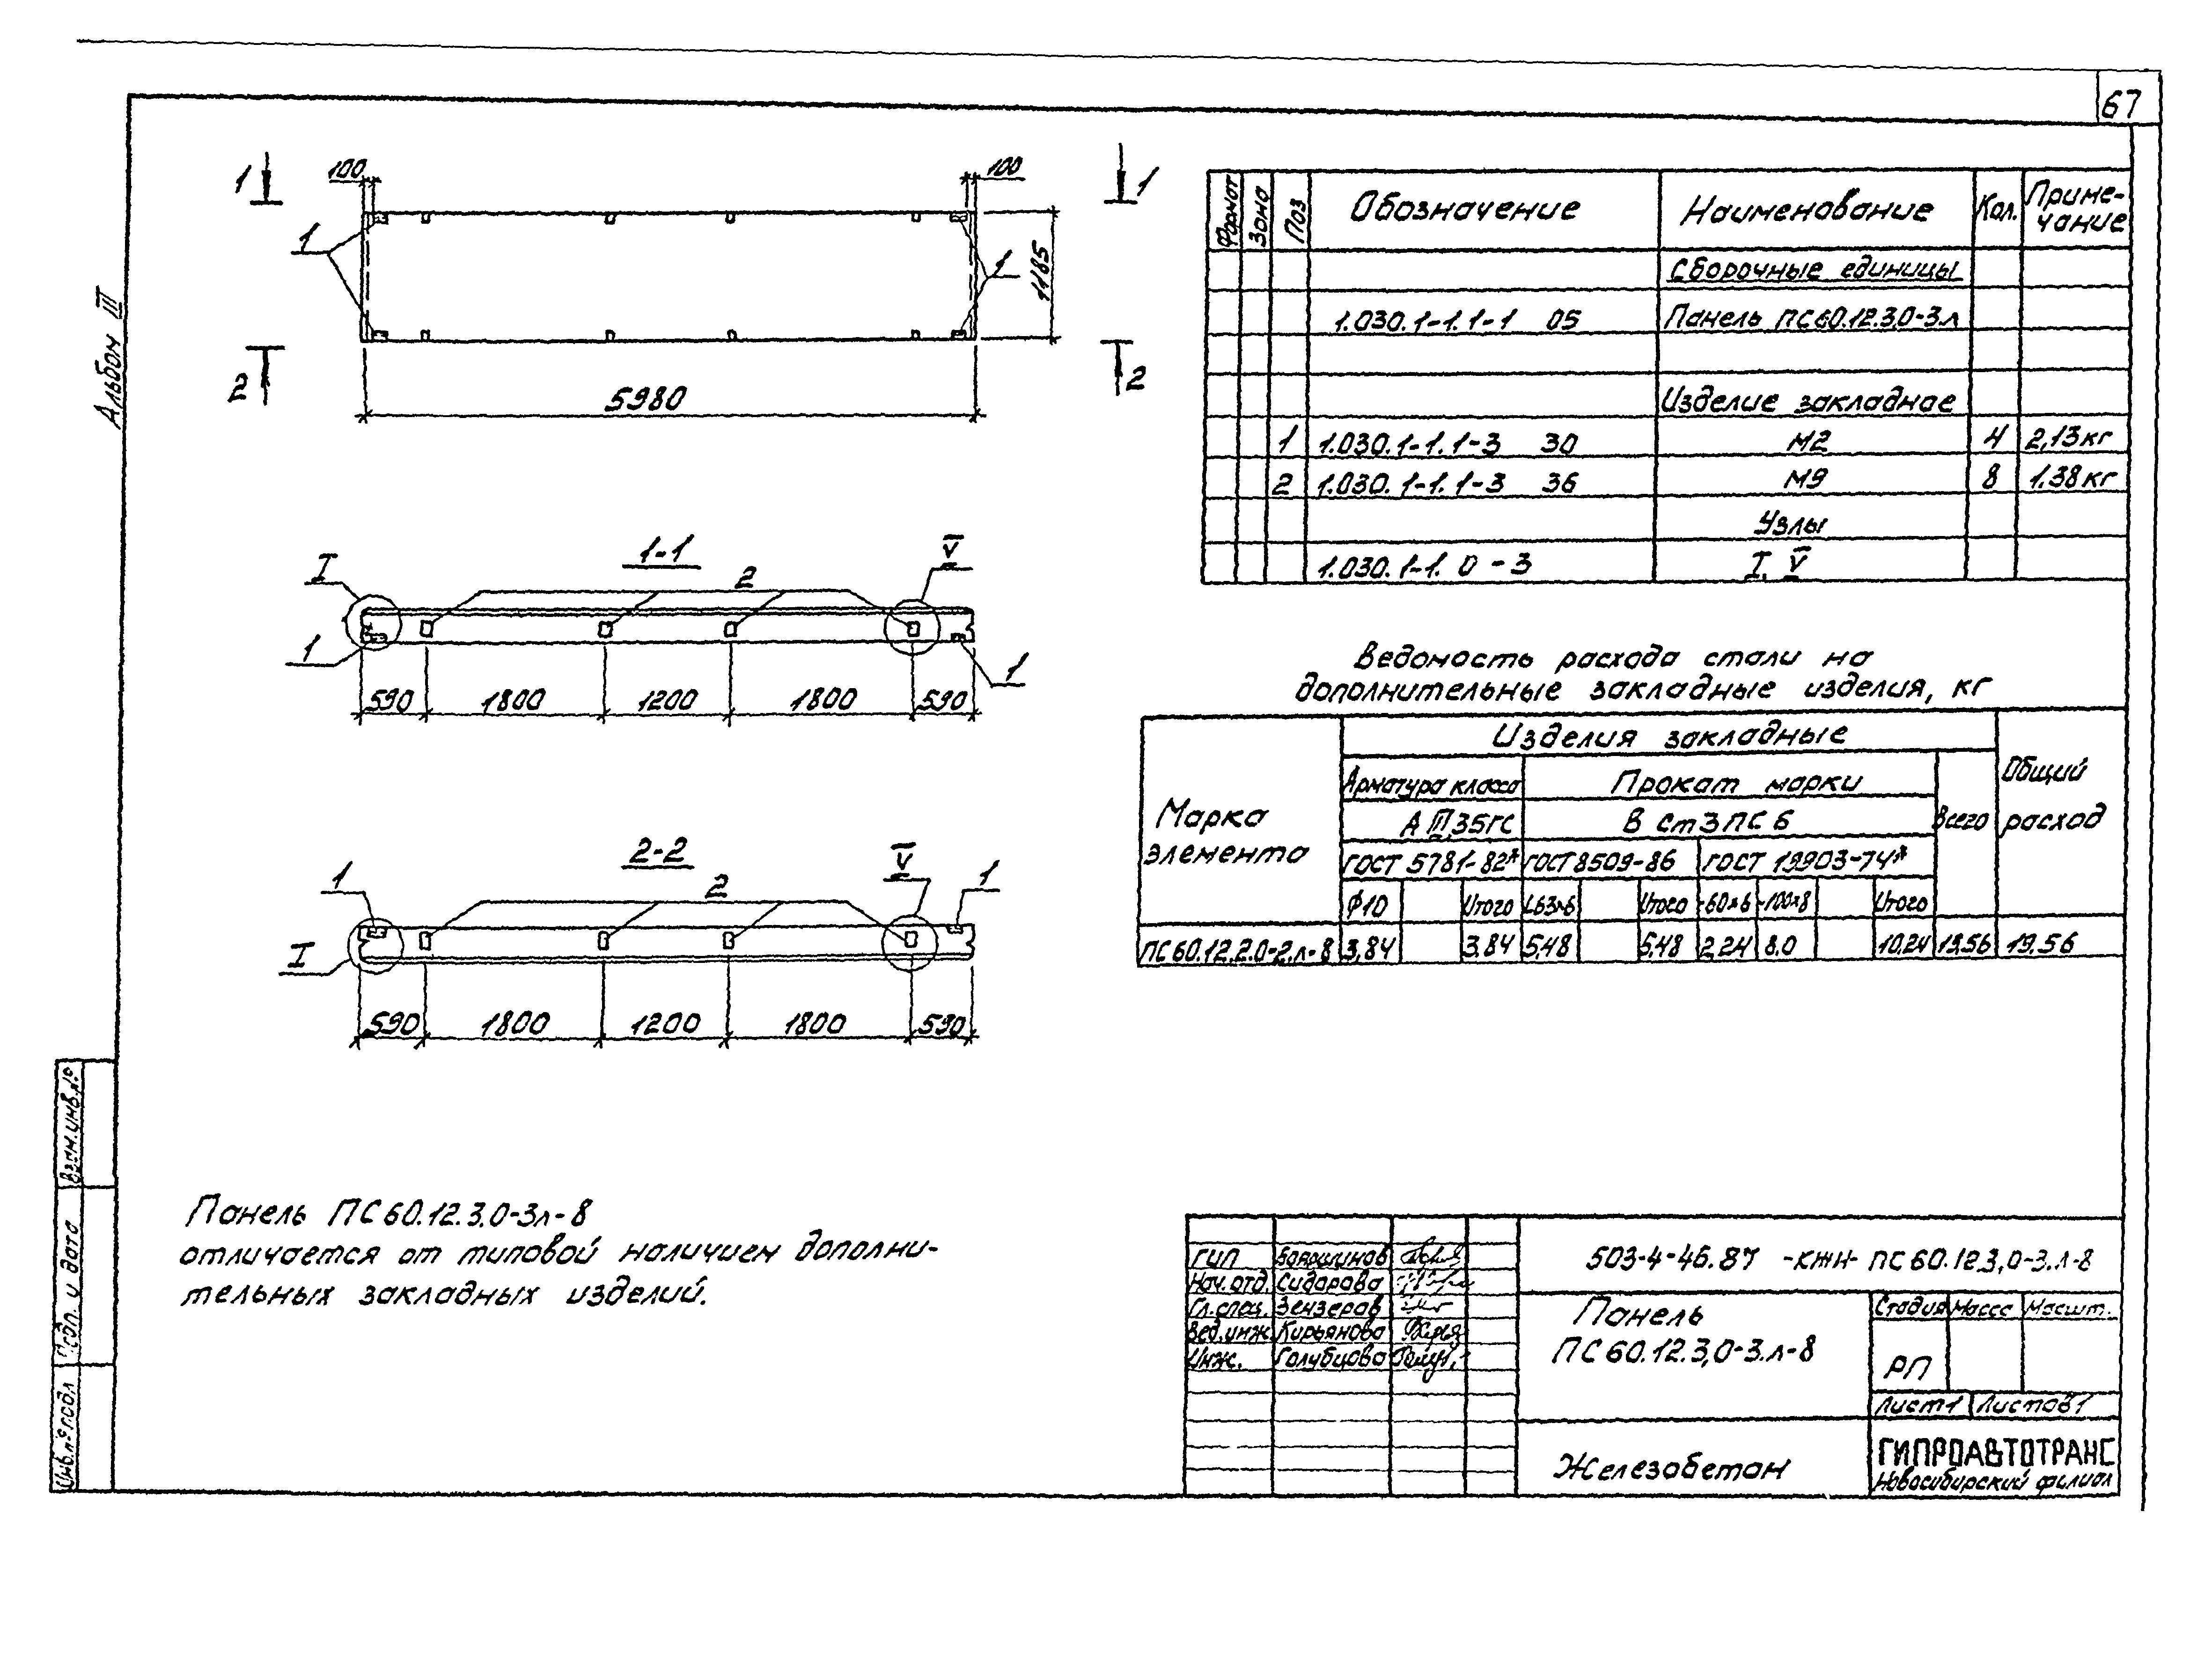 67
Альбом III
1 1
100 100
1 1
1185
2 2
5980
1-1
I V
2
1 1
590 1800 1200 1800 590
2-2
1 V 1
2
I
590 1800 1200 1800 590
Формат Зона Поз Обозначение Наименование Кол. Приме-
чание
Сборочные единицы
1.030.1-1.1-1 05 Панель ПС60.12.3,0-3.л
Изделие закладное
1 1.030.1-1.1-3 30 М2 4 2,13кг
2 1.030.1-1.1-3 36 М9 8 1.38кг
Узлы
1.030.1-1. 0-3 I, V
Ведомость расхода стали на
дополнительные закладные изделия, кг
Марка
элемента
Изделия закладные
Арматура класса Прокат марки
Всего
Общий
расход
А III 35ГС В Ст3ПС6
ГОСТ 5781-82* ГОСТ 8509-86 ГОСТ 19903-74*
Ф10 Итого L63×6 Итого -60×6 -100×8 Итого
ПС60.12.2.0-2.л-8 3,84 3,84 5,48 5,48 2,24 8,0 10,24 19,56 19,56
Панель ПС60.12.3,0-3л-8
отличается от типовой наличием дополни-
тельных закладных изделий.
Взам.инв.№
Подп. и дата
Инв.№подл
ГИП
Нач.отд. Сидорова
Гл.спец. Зензеров
Вед.инж. Кирьянова
Инж. Голубцова
503-4-46.87 -КЖН- ПС60.12.3,0-3.л-8
Панель
ПС60.12.3,0-3.л-8
Стадия Масса Масшт.
РП
Лист 1 Листов 1
Железобетон
ГИПРОАВТОТРАНС
Новосибирский филиал